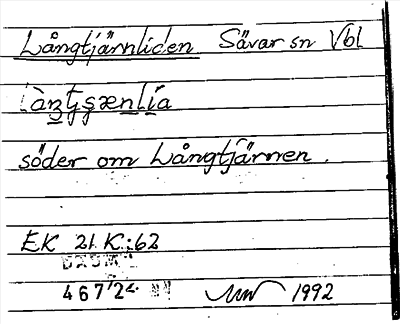 Långtjärnliden Sävar sn Vbl
làŋtʃænlia
söder om Långtjärnen.
EK 21 K:62
467/2
1992